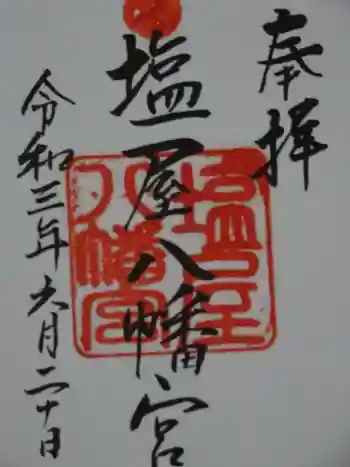 奉拝
塩屋八幡宮
塩屋八幡宮
令和三年六月二十日